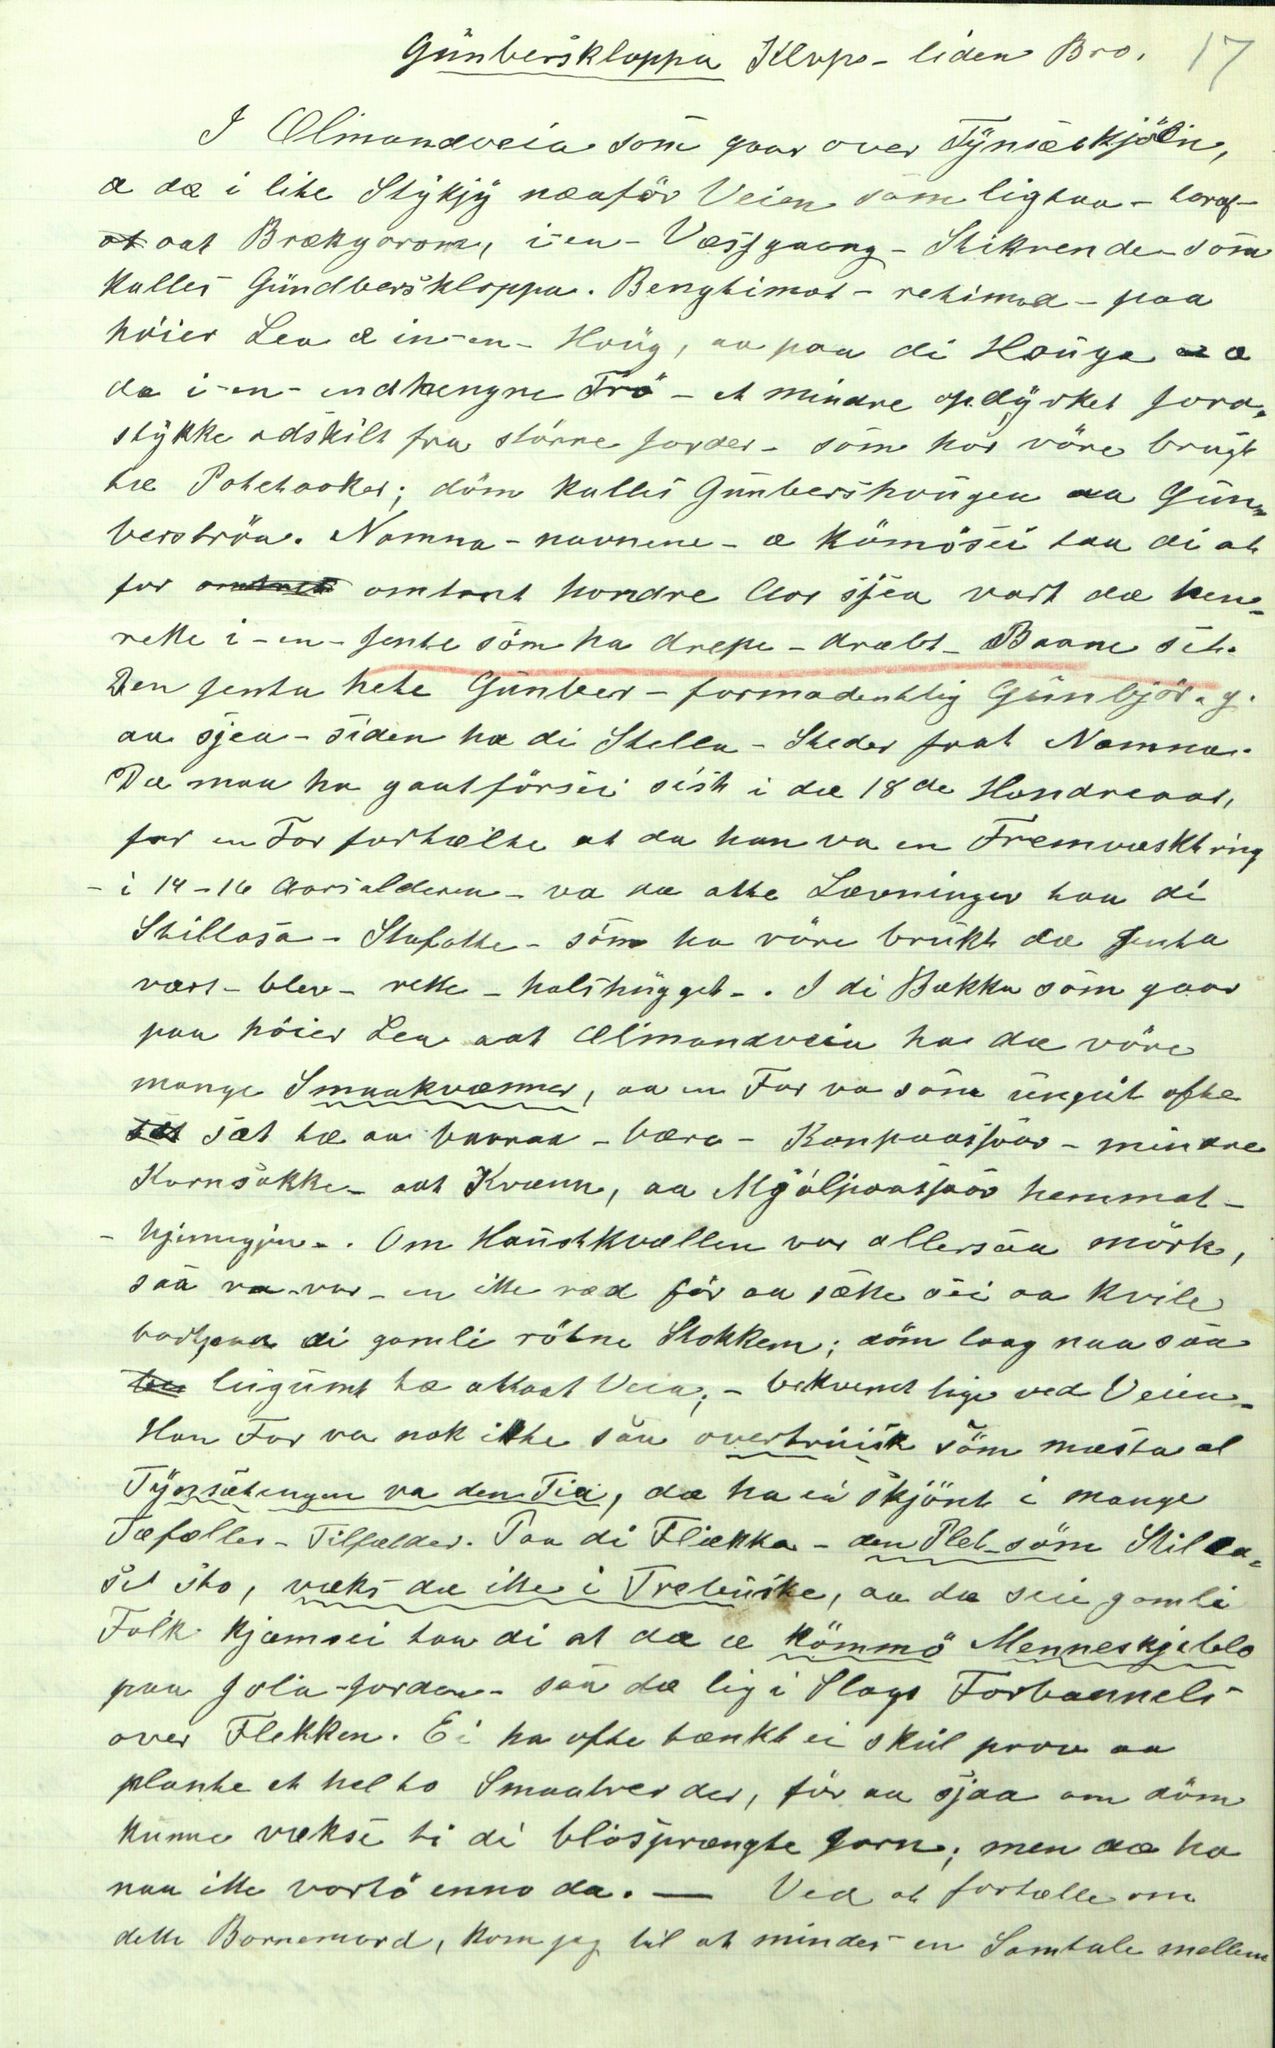 Günberskloppa Klop - liden Bro. 17
I Olmandveia som gaar over Tynsætkjölin,
æ dæ i lite Stykjy næaför Veien söm ligtaa - tæraf -
aat Brækgarom, i-en - Vassgaang - Stikrende - söm
kalles Gündberskloppa. Benghimot - retimod - paa
höier Lea æ in-en - Houg, aa paa di Houga æ
da i-en - indhængne Trö - et mindre opdyrket Jord-
stykke adskilt fra större Jorder - söm hör vöre brugt
tæ Potetaaker; döm kalles Günbershougen aa Gün-
berströa. Namna - navnene - æ kömösei taa di at
for omtrent hondre Aar sjea vart dæ hen-
rette i-en - Jente söm ha drepe - dræbt - Baane sit.
Den Jenta hete Günber - formodentlig Günbjör.g.
aa sjea - siden ha di Stella - Steder faat Namna.
Dæ maa ha gaatförsei sist i dæ 18de Hondreaar,
for en Far fortælte at da han va en Fremvæsktring
- i 14-16 Aarsalderen - va dæ atte Lævninger taa di
Stillasa - Stufatte - söm ha vöre brukt dæ Jenta
vart - blev - rette - halshügget -. I di Bækka söm gaar
paa höier Lea aat Olmandveia ha dæ vöre
mange Smaakvænner, aa en Far va söm üngüt ofte
sæt tæ aa bærra - bære - Konpaasjaar - mindre
Kornsække - aat Kvænn, aa Mjölpaasjaar hemmat -
- hjemigjen -. Om Haustkvællen var allersaa mörk,
saa va - var - en itte ræd för aa sætte sei aa kvile
bortpaa di gamli rötne Stokkem; döm laag naa saa
lügümt tæ attaat Veia; - bekvemt lige ved Veien -
Han Far va nok ikke saa overtruisk söm mæsta al
Tynsætingen va den Tia, dæ ha ei skjönt i mange
Tæfæller - Tilfælder. Paa di Flækka - den Plet - söm Stilla-
set sto, væks dæ itte i Trebüske, aa dæ seie gamli
Folk kjæmsei taa di at dæ æ kömmö Menneskjeblo
paa Jola - Jorden - saa dæ lig i Slags Forbannels
over Flekken. Ei ha ofte tænkt ei skül prøve aa
plante et hel to Smaatreer der, för aa sjaa om döm
kunne vækse ti di blosprængte Jorn; men dæ ha
naa itte vortö enno da. — Ved at fortælle om
dette Barnemord, kom jeg til at mindes en Samtale mellem